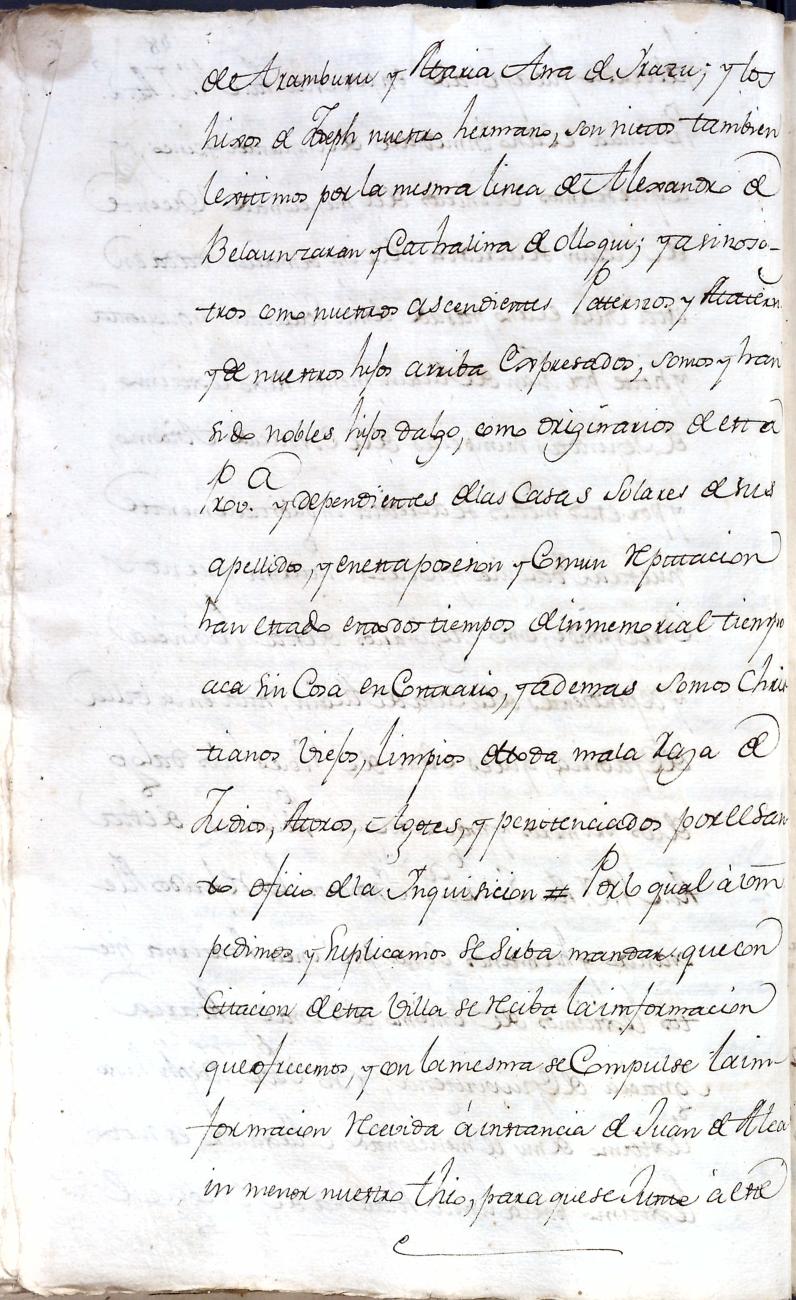 de Aramburu y Maria Ana de Yrazu; y los
hixos de Joseph nuestro hermano, son nietos tambien
lexitimos por la misma linea de Alexandro de
Belaunzaran y Cathalina de olloqui; y asi noso-
tros como nuestros ascendientes Paternos y Matern
y de nuestros hijos arriba Expresados, somos y han
sido nobles hijos dalgo, como originarios de esta
Prov.ª y dependientes de las Casas Solares de sus
apellidos, y en esta posesion y Comun reputacion
han estado en todos tiempos de inmemorial tiempo
aca sin Cosa en Contrario, y ademas somos Chris
tianos Viejos, limpios de toda mala Raza de
Judios, Moros, Agotes, y penitenciados por el San
to oficio de la Inquisicion # Por lo qual à Vm
pedimos y suplicamos se sirba mandar, que con
Citacion de esta Villa se reciba la informacion
que ofrecemos, y con la mesma se Compulse la in-
formacion recivida á instancia de Juan de Alca
in menor nuestro thio, para que se Junte à este